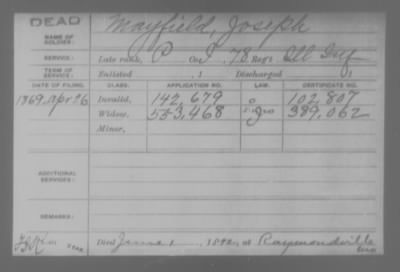 DEAD
NAME OF SOLDIER:
Mayfield, Joseph
SERVICE:
Late rank, P Co. I, 78 Reg't Ill Inf
TERM OF SERVICE:
Enlisted , 1 Discharged 1
DATE OF FILING. CLASS. APPLICATION NO. LAW. CERTIFICATE NO.
1869, Apr 26 Invalid, 142,679 102,807
Widow, 553,468 389,062
Minor,
ADDITIONAL SERVICES:
REMARKS:
Died June 1 at Raymondville